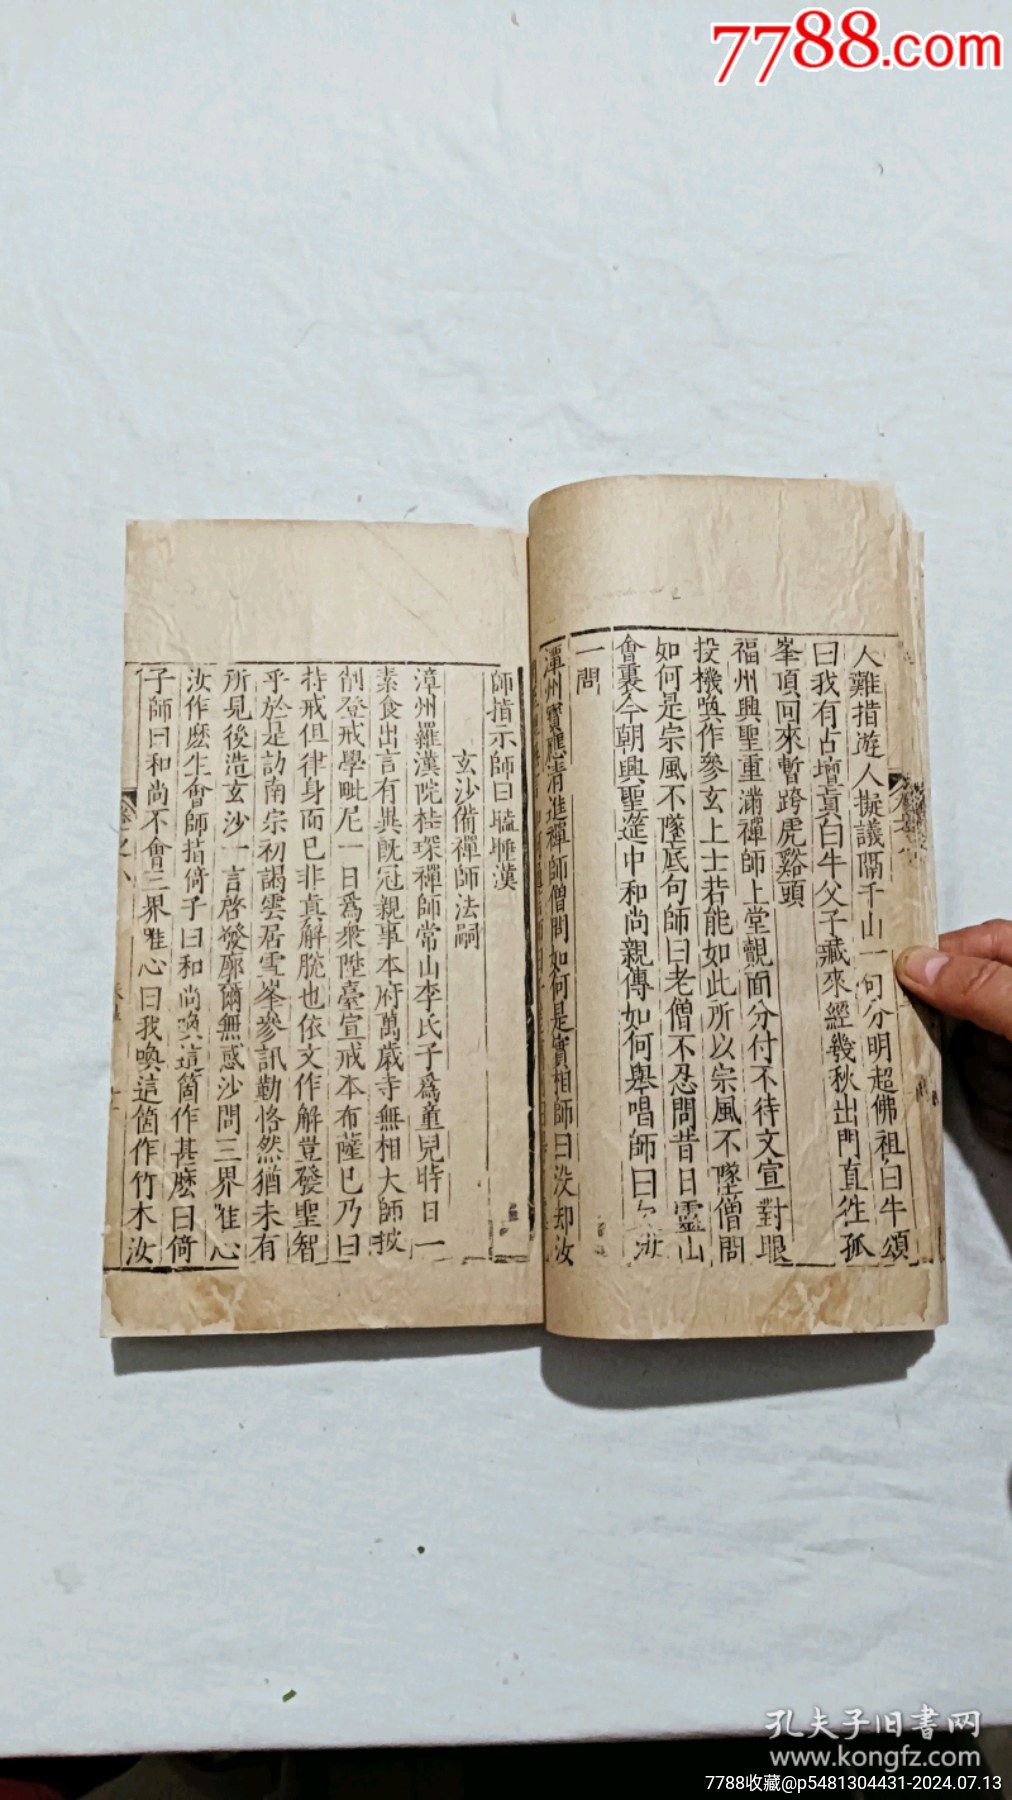 7788.com
人難措遊人擬議隔千山一句分明超佛祖白牛頌
曰我有古壇真白牛父子藏來經幾秋出門直往孤
峯頂回來暫跨虎谿頭
福州興聖重滿禪師上堂覿面分付不待文宣對眼
投機喚作參玄上士若能如此所以宗風不墜僧問
如何是宗風不墜底句師曰老僧不忍問昔日靈山
會裏今朝興聖筵中和尚親傳如何舉唱師曰
一問
潭州寶應清進禪師僧問如何是實相師曰没却汝
師指示師曰瞌睡漢
玄沙備禪師法嗣
漳州羅漢院桂琛禪師常山李氏子爲童兒時日一
素食出言有異既冠親事本府萬歲寺無相大師披
削登戒學毗尼一日爲衆陞臺宣戒本布薩已乃曰
持戒但律身而已非真解脫也依文作解豈發聖智
乎於是訪南宗初謁雲居雪峯參訊勤恪然猶未有
所見後造玄沙一言啓發廓爾無惑沙問三界唯心
汝作麽生會師指倚子曰和尚喚這箇作甚麽曰倚
子師曰和尚不會三界唯心曰我喚這箇作竹木汝
孔夫子旧書网
www.kongfz.com
7788收藏@p5481304431-2024.07.13